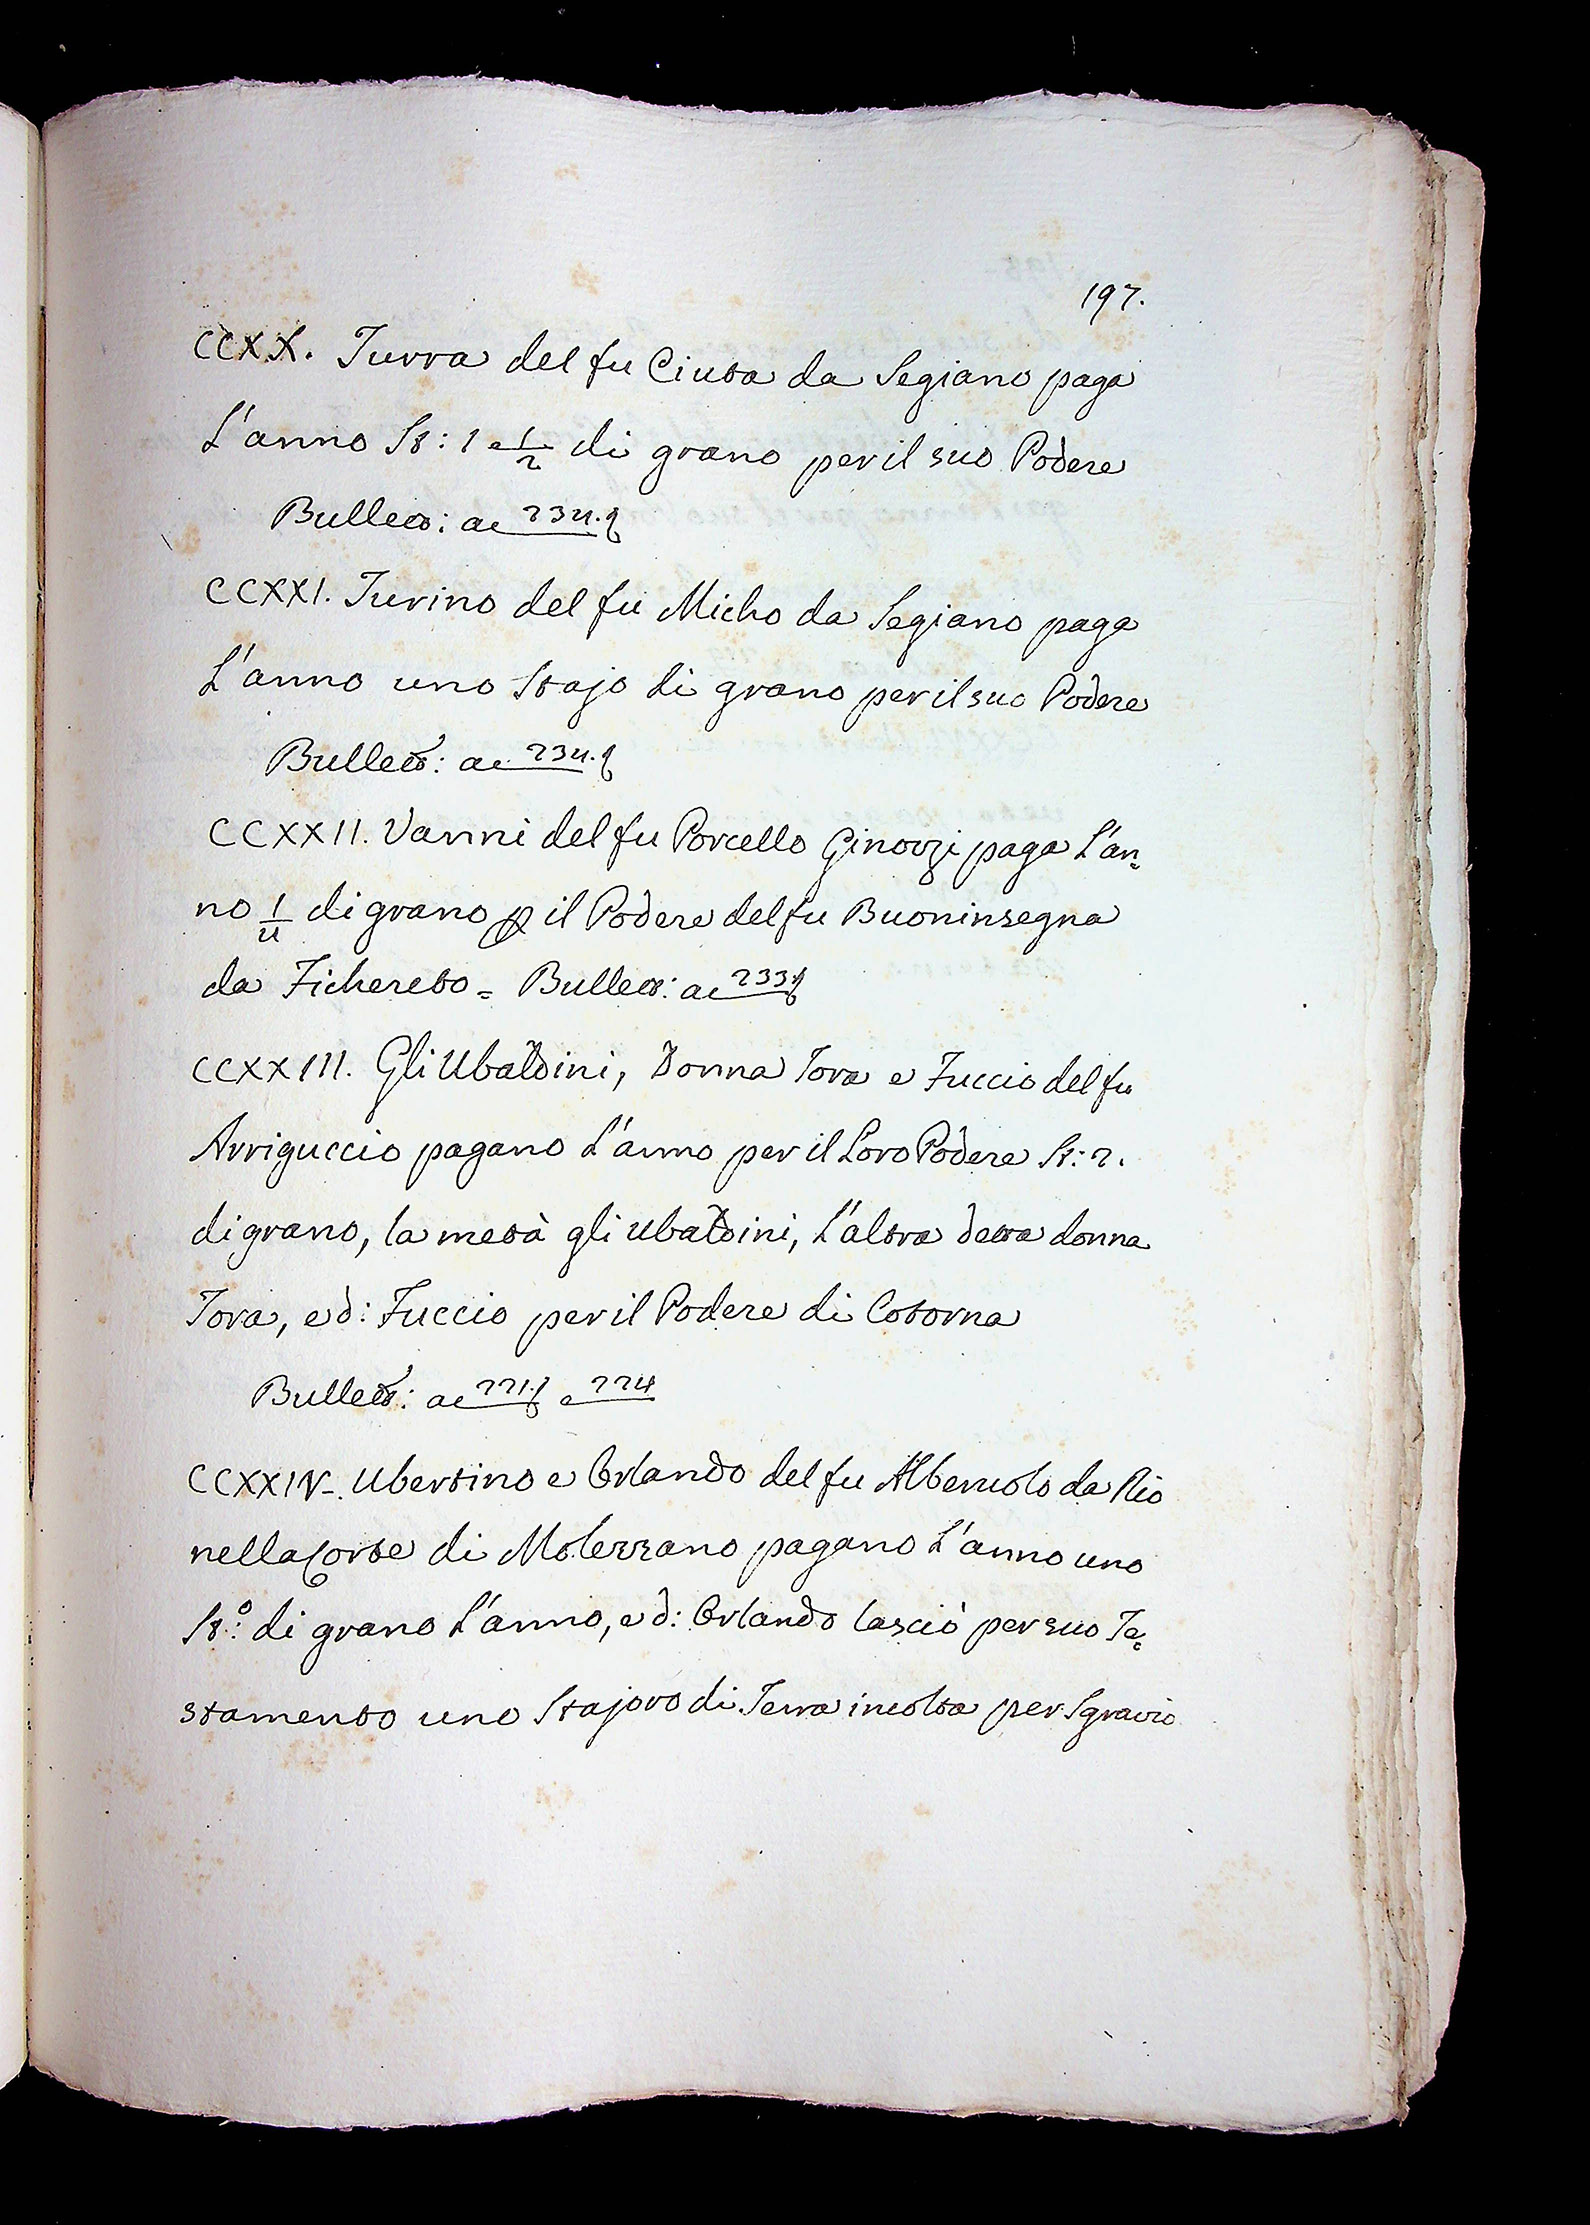 197.
CCXX. Turra del fu Ciuta da Segiano paga
L'anno St: 1 e 1/2 di grano per il suo Podere
Bullett: ac 234.
CCXXI. Turino del fu Micho da Segiano paga
L'anno uno Stajo di grano per il suo Podere
Bullett: ac 234.
CCXXII. Vanni del fu Porcello Ginozzi paga L'an=
no 1/4 di grano p il Podere del fu Buoninsegna
da Fichereto = Bullett: ac 233
CCXXIII. Gli Ubaldini, Donna Tora e Fuccio del fu
Arriguccio pagano L'anno per il Loro Podere St: 2.
di grano, la metà gli Ubaldini, L'altra detta donna
Tora, e d: Fuccio per il Podere di Cotorna
Bullett: ac 221. e 224
CCXXIV. Ubertino e Orlando del fu Albernolo da Rio
nella Corte di Molezzano pagano L'anno uno
St.o: di grano L'anno, e d: Orlando lasciò per suo Te=
stamento uno Stajoro di Terra incolta per Sgravio